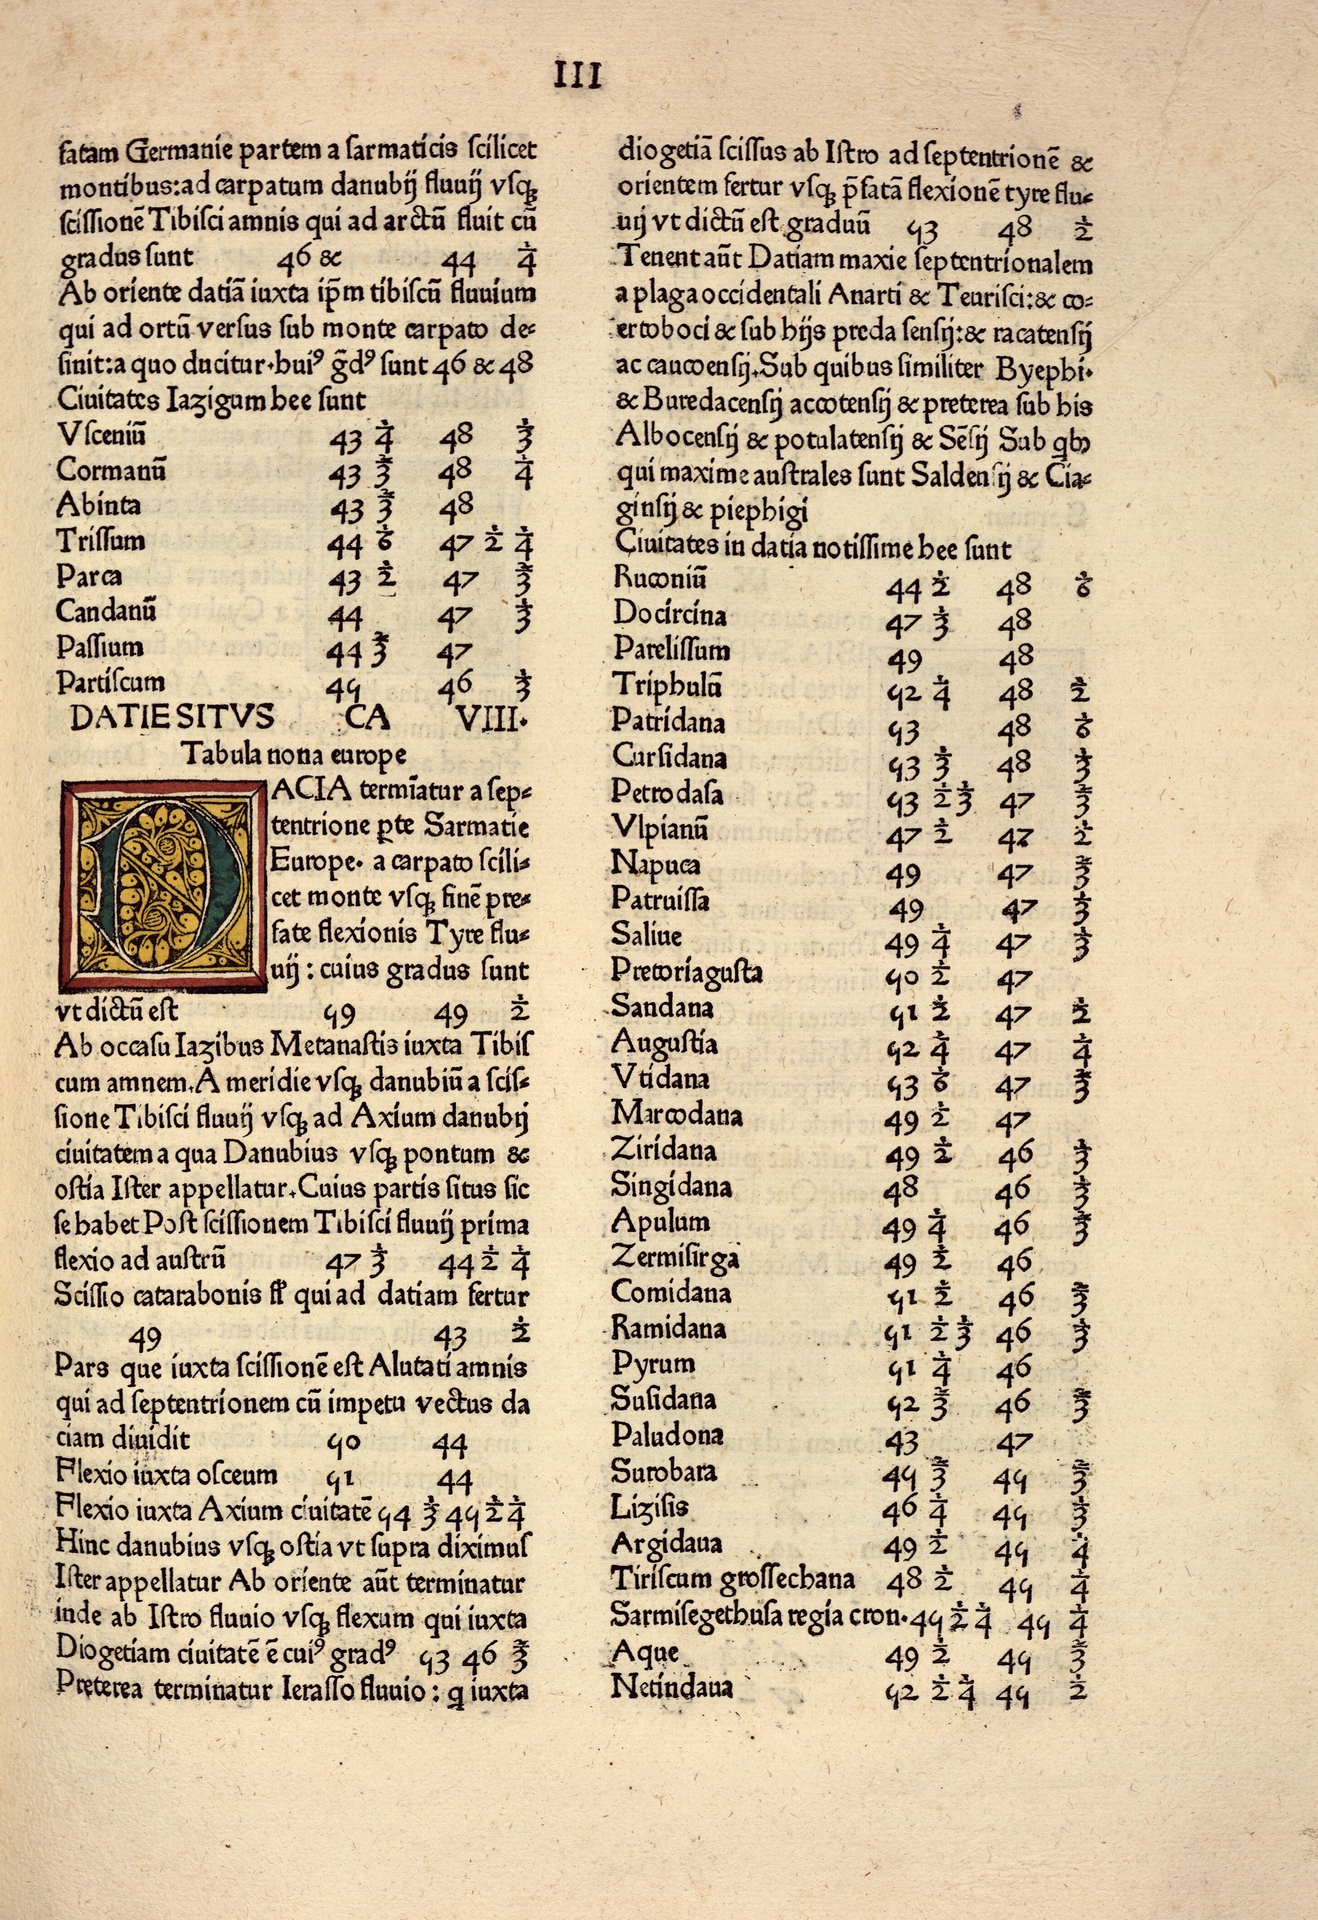 III
fatam Germanie partem a ſarmaticis ſcilicet
montibus:ad carpatum danubij fluuij vſqꝫ
ſciſſionē Tibiſci amnis qui ad arctū fluit cū
gradus ſunt 46 & 44 ¼
Ab oriente datiā iuxta ip̄m tibiſcū fluuium
qui ad ortū verſus ſub monte carpato de⸗
ſinit:a quo ducitur·huiꝰ g̃dꝰ ſunt 46 & 48
Ciuitates Iazigum hee ſunt
Vſceniū 43 ¼ 48 ⅓
Cormanū 43 ⅔ 48 ¼
Abinta 43 ⅔ 48
Triſſum 44 ⅙ 47 ½ ¼
Parca 43 ½ 47 ⅔
Candanū 44 47 ⅓
Paſſium 44 ⅔ 47
Partiſcum 45 46 ⅓
DATIE SITVS CA VIII·
Tabula nona europe
DACIA termīatur a ſep⸗
tentrione ꝑte Sarmatie
Europe· a carpato ſcili⸗
cet monte vſqꝫ finē pre⸗
fate flexionis Tyre flu⸗
uij : cuius gradus ſunt
vt dictū eſt 59 49 ½
Ab occaſu Iazibus Metanaſtis iuxta Tibiſ
cum amnem.A meridie vſqꝫ danubiū a ſciſ⸗
ſione Tibiſci fluuij vſqꝫ ad Axium danubij
ciuitatem a qua Danubius vſqꝫ pontum &
oſtia Iſter appellatur.Cuius partis ſitus ſic
ſe habet Poſt ſciſſionem Tibiſci fluuij prima
flexio ad auſtrū 47 ⅓ 44 ½ ¼
Sciſſio catarabonis fł qui ad datiam fertur
49 43 ½
Pars que iuxta ſciſſionē eſt Alutati amnis
qui ad ſeptentrionem cū impetu vectus da
ciam diuidit 50 44
Flexio iuxta oſceum 51 44
Flexio iuxta Axium ciuitatē 54 ⅓ 45 ½ ¼
Hinc danubius vſqꝫ oſtia vt ſupra diximuſ
Iſter appellatur Ab oriente aūt terminatur
inde ab Iſtro fluuio vſqꝫ flexum qui iuxta
Diogetiam ciuitatē ē cuiꝰ gradꝰ 53 46 ⅔
Preterea terminatur Ieraſſo fluuio : q iuxta
diogetiā ſciſſus ab Iſtro ad ſeptentrionē &
orientem fertur vſqꝫ p̄fatā flexionē tyre flu⸗
uij vt dictū eſt graduū 53 48 ½
Tenent aūt Datiam maxie ſeptentrionalem
a plaga occidentali Anarti & Teuriſci:& co⸗
ertoboci & ſub hijs preda ſenſij:& racatenſij
ac caucoenſij.Sub quibus ſimiliter Byephi·
& Buredacenſij accotenſij & preterea ſub his
Albocenſij & potulatenſij & Sēſij Sub qbꝫ
qui maxime auſtrales ſunt Saldenſij & Cia⸗
ginſij & piephigi
Ciuitates in datia notiſſime hee ſunt
Ruconiū 44 ½ 48 ⅙
Docircina 47 ⅓ 48
Pareliſſum 49 48
Triphulū 52 ¼ 48 ½
Patridana 53 48 ⅙
Curſidana 53 ⅓ 48 ⅓
Petrodaſa 53 ½ ⅓ 47 ⅔
Vlpianū 47 ½ 47 ½
Napuca 49 47 ⅔
Patruiſſa 49 47 ⅓
Saliue 49 ¼ 47 ⅓
Pretoriaguſta 50 ½ 47
Sandana 51 ½ 47 ½
Auguſtia 52 ¼ 47 ¼
Vtidana 53 ⅙ 47 ⅔
Marcodana 49 ½ 47
Ziridana 49 ½ 46 ⅓
Singidana 48 46 ⅓
Apulum 49 ¼ 46 ⅔
Zermiſirga 49 ½ 46
Comidana 51 ½ 46 ⅔
Ramidana 51 ½ ⅓ 46 ⅓
Pyrum 51 ¼ 46
Suſidana 52 ⅔ 46 ⅔
Paludona 43 47
Surobara 45 ⅔ 45 ⅔
Liziſis 46 ¼ 45 ⅓
Argidaua 49 ½ 45 ¼
Tiriſcum groſſechana 48 ½ 45 ¼
Sarmiſegethuſa regia cron·45 ½ ¼ 45 ¼
Aque 49 ½ 45 ⅔
Netindaua 52 ½ ¼ 45 ½